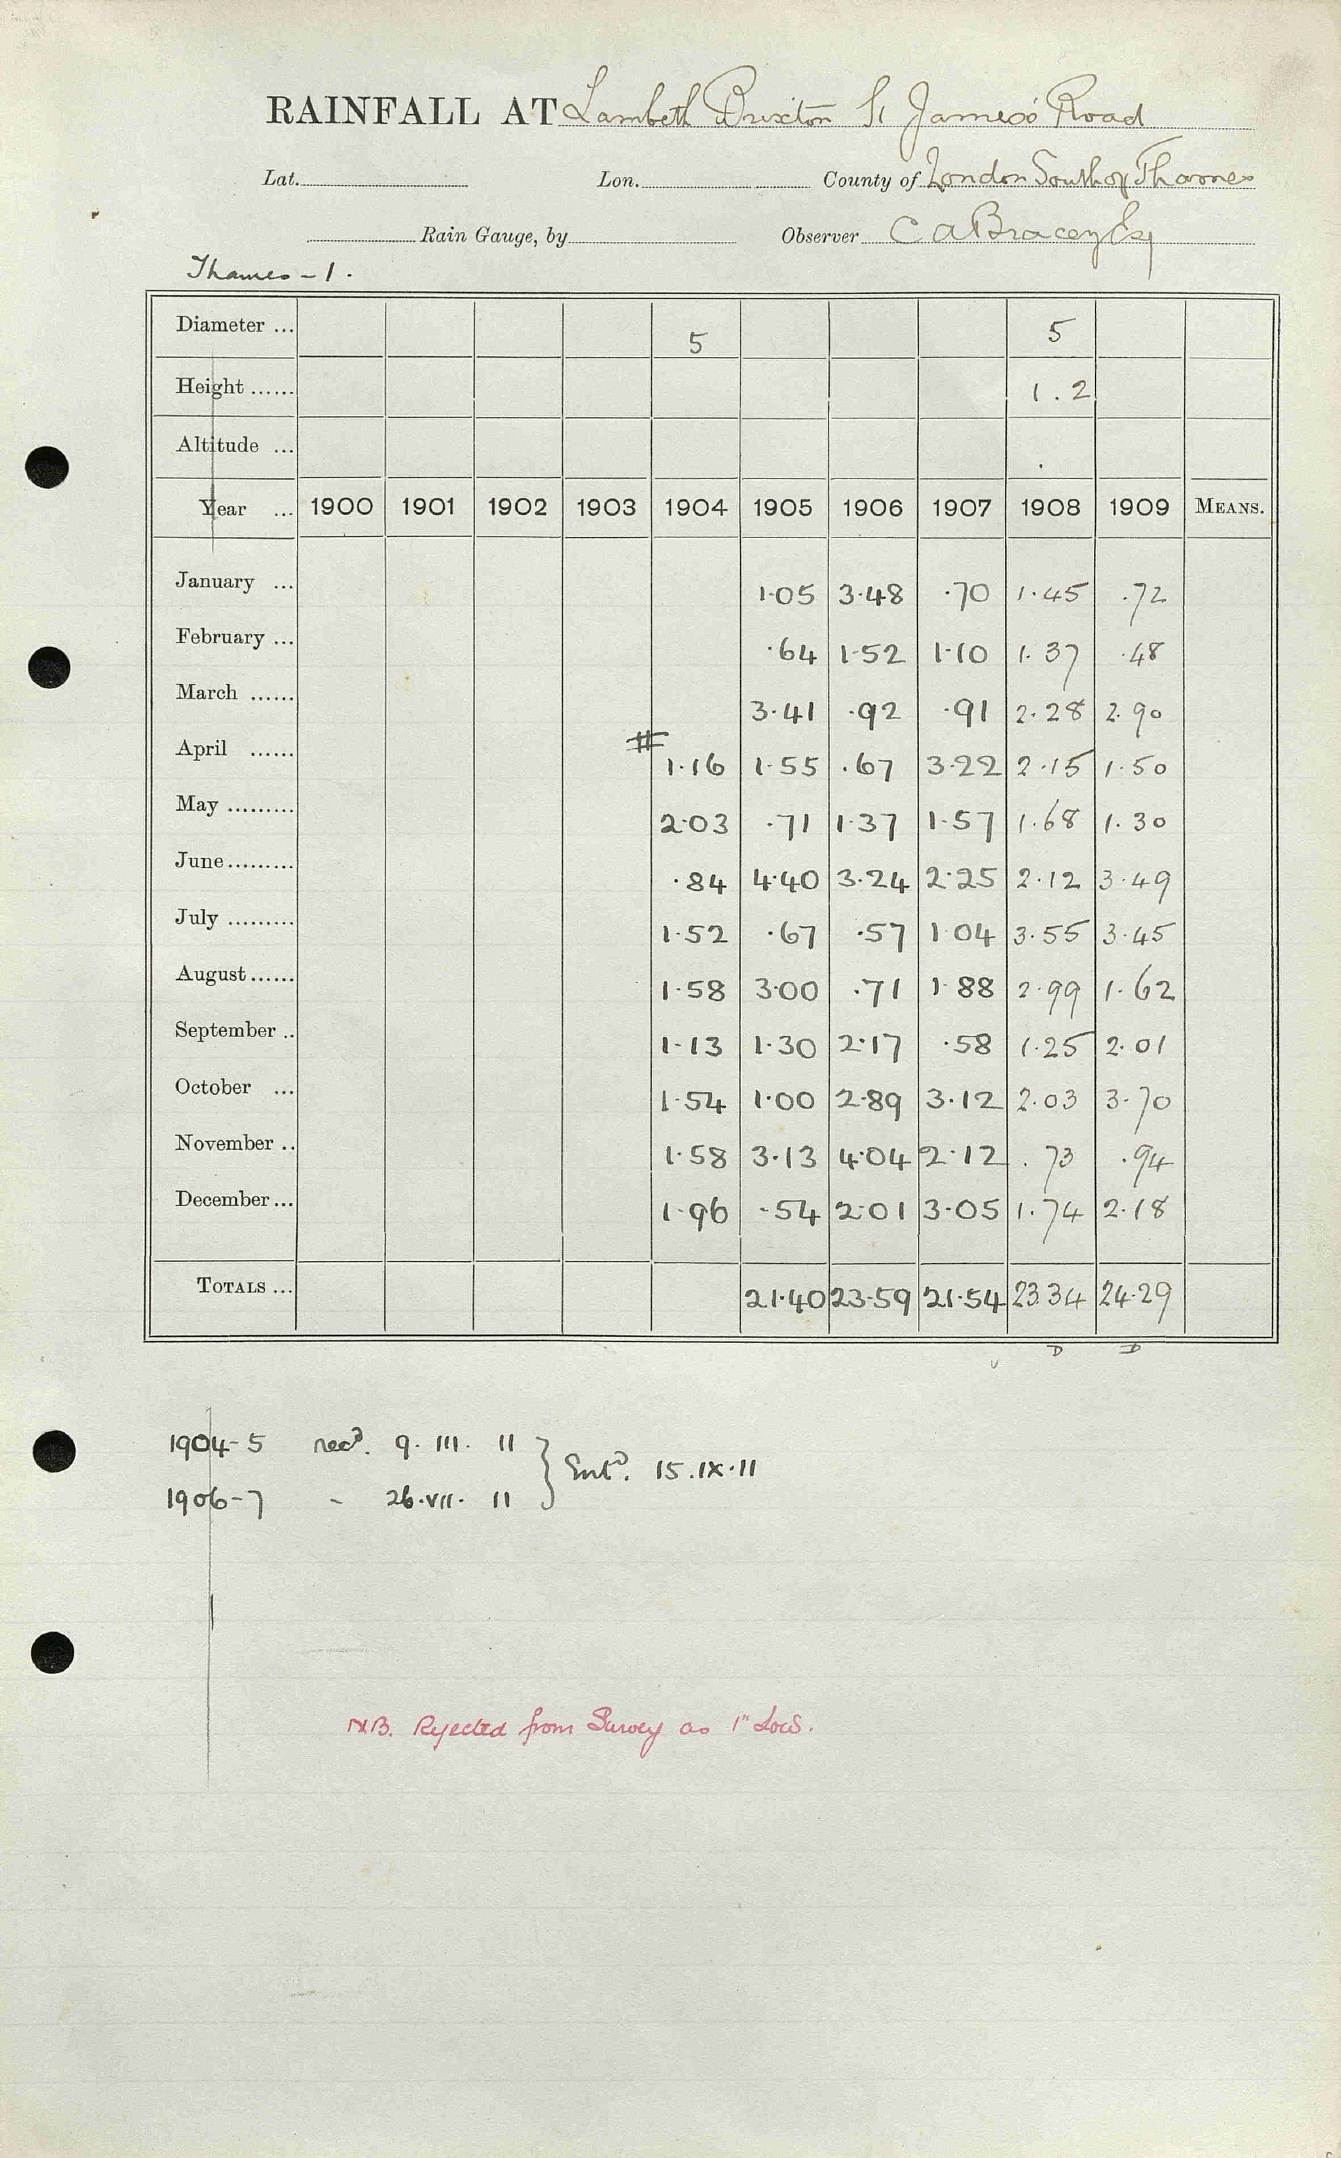 RAINFALL AT Lambeth Brixton St James's Road
Lat. Lon. County of London South of Thames
Rain Gauge, by Observer C A Bracey Esq
Thames - 1.
Diameter ... 5 5
Height ...... 1.2
Altitude ...
Year ... 1900 1901 1902 1903 1904 1905 1906 1907 1908 1909 MEANS.
January ... 1.05 3.48 .70 1.45 .72
February ... .64 1.52 1.10 1.37 .48
March ...... 3.41 .92 .91 2.28 2.90
April ...... # 1.16 1.55 .67 3.22 2.15 1.50
May ......... 2.03 .71 1.37 1.57 1.68 1.30
June ......... .84 4.40 3.24 2.25 2.12 3.49
July ......... 1.52 .67 .57 1.04 3.55 3.45
August ...... 1.58 3.00 .71 1.88 2.99 1.62
September .. 1.13 1.30 2.17 .58 1.25 2.01
October ... 1.54 1.00 2.89 3.12 2.03 3.70
November .. 1.58 3.13 4.04 2.12 .73 .94
December ... 1.96 .54 2.01 3.05 1.74 2.18
TOTALS ... 21.40 23.59 21.54 23.34 24.29
D D
1904-5 recd. 9. III. 11
} Entd. 15.IX.11
1906-7 - 26.VII. 11
N.B. Rejected from Survey as 1" Low.